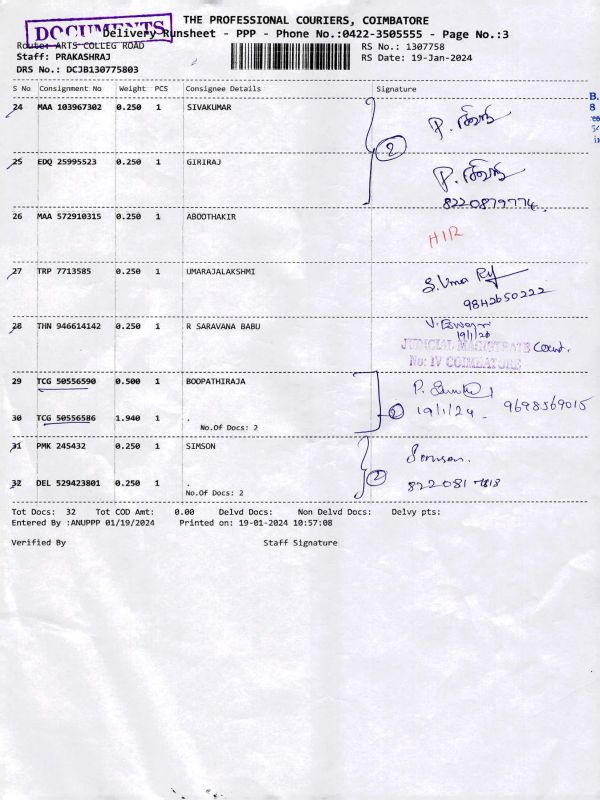 THE PROFESSIONAL COURIERS, COIMBATORE
DOCUMENTS
Delivery Runsheet - PPP - Phone No.:0422-3505555 - Page No.:3
Route: ARTS COLLEG ROAD RS No.: 1307758
Staff: PRAKASHRAJ RS Date: 19-Jan-2024
DRS No.: DCJB130775803
S No Consignment No Weight PCS Consignee Details Signature
24 MAA 103967302 0.250 1 SIVAKUMAR
2
25 EDQ 25995523 0.250 1 GIRIRAJ
8220879774
26 MAA 572910315 0.250 1 ABOOTHAKIR
27 TRP 7713585 0.250 1 UMARAJALAKSHMI S. Uma
9842650222
28 THN 946614142 0.250 1 R SARAVANA BABU
JUDICIAL MAGISTRATE Court.
No: IV COIMBATORE
29 TCG 50556590 0.500 1 BOOPATHIRAJA
2 19/1/24 9698569015
30 TCG 50556586 1.940 1 .
No.Of Docs: 2
31 PMK 245432 0.250 1 SIMSON
2
32 DEL 529423801 0.250 1 .
No.Of Docs: 2
Tot Docs: 32 Tot COD Amt: 0.00 Delvd Docs: Non Delvd Docs: Delvy pts:
Entered By :ANUPPP 01/19/2024 Printed on: 19-01-2024 10:57:08
Verified By Staff Signature